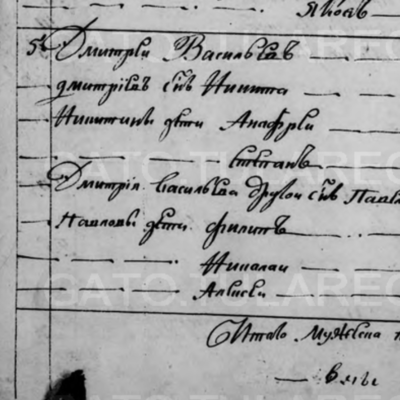 Яковъ
5 Дмитрїи Васильевъ
дмитрїевъ снъ Никита
Никитины дѣти Анофрѣи
степанъ
Дмитрїя васильева другои снъ Павел
Павловы дѣти филипъ
Николаи
Алѣксѣи
Итого мужеска